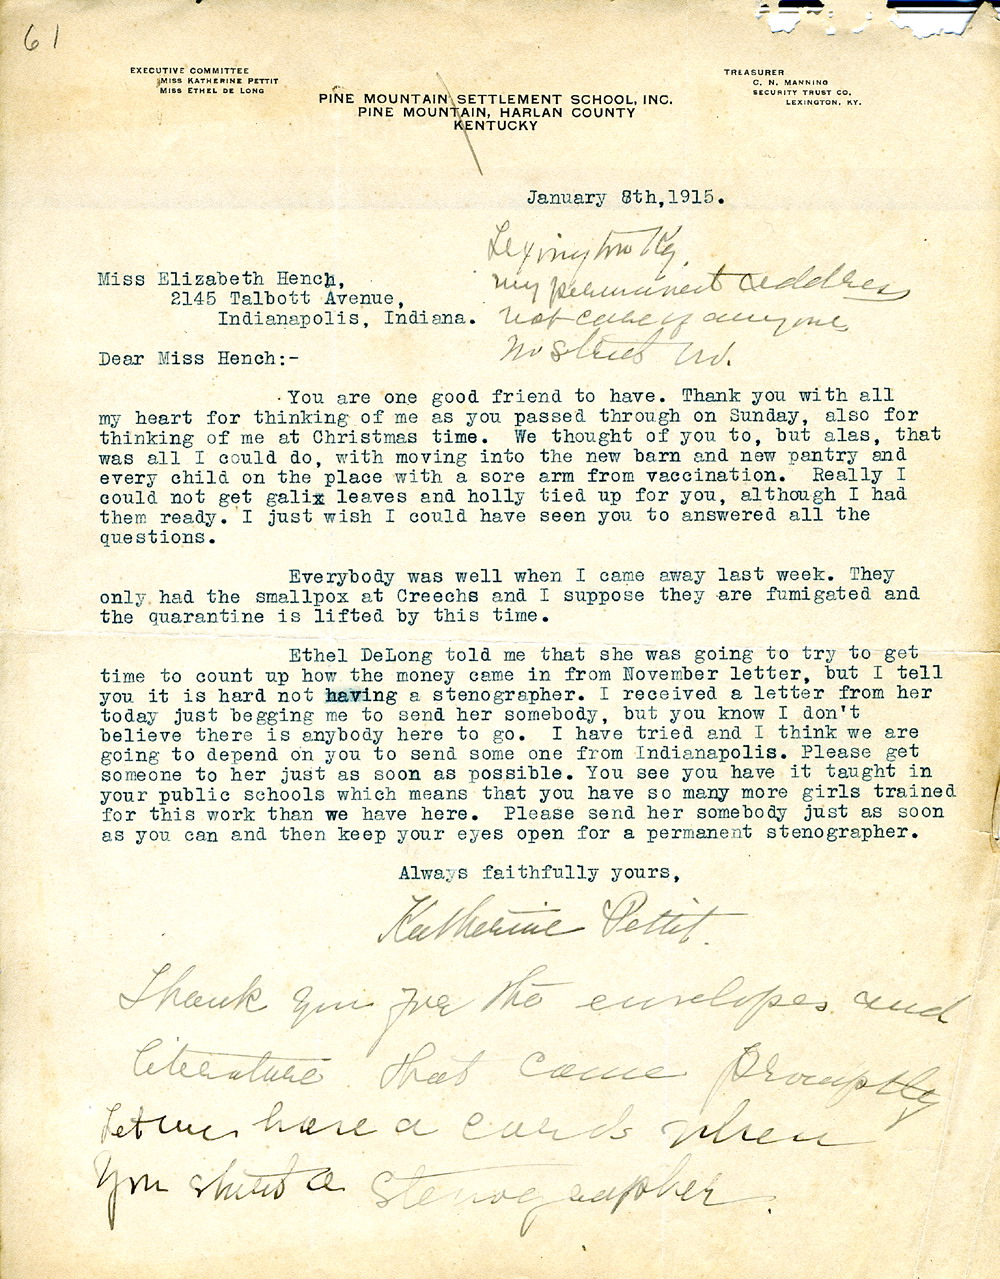 61
EXECUTIVE COMMITTEE
MISS KATHERINE PETTIT
MISS ETHEL DE LONG
TREASURER
C. N. MANNING
SECURITY TRUST CO.
LEXINGTON, KY.
PINE MOUNTAIN SETTLEMENT SCHOOL, INC.
PINE MOUNTAIN, HARLAN COUNTY
KENTUCKY
January 8th,1915.
Lexington Ky.
my permanent address
not care of anyone
No street no.
Miss Elizabeth Hench,
2145 Talbott Avenue,
Indianapolis, Indiana.
Dear Miss Hench:-
You are one good friend to have. Thank you with all
my heart for thinking of me as you passed through on Sunday, also for
thinking of me at Christmas time. We thought of you to, but alas, that
was all I could do, with moving into the new barn and new pantry and
every child on the place with a sore arm from vaccination. Really I
could not get galix leaves and holly tied up for you, although I had
them ready. I just wish I could have seen you to answered all the
questions.
Everybody was well when I came away last week. They
only had the smallpox at Creechs and I suppose they are fumigated and
the quarantine is lifted by this time.
Ethel DeLong told me that she was going to try to get
time to count up how the money came in from November letter, but I tell
you it is hard not having a stenographer. I received a letter from her
today just begging me to send her somebody, but you know I don't
believe there is anybody here to go. I have tried and I think we are
going to depend on you to send some one from Indianapolis. Please get
someone to her just as soon as possible. You see you have it taught in
your public schools which means that you have so many more girls trained
for this work than we have here. Please send her somebody just as soon
as you can and then keep your eyes open for a permanent stenographer.
Always faithfully yours,
Katherine Pettit.
Thank you for the envelopes and
literature that came promptly
Let me have a cards when
You a stenographer.